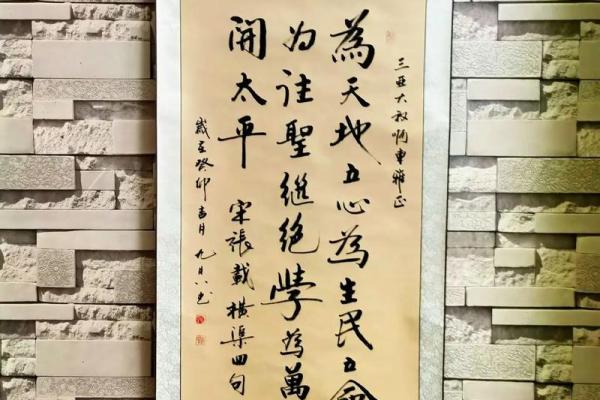 三亞大叔啊東雅正
為天地立心為生民立命
为往聖繼絕學為萬
開太平 宋張載橫渠四句
歲在癸卯吉月